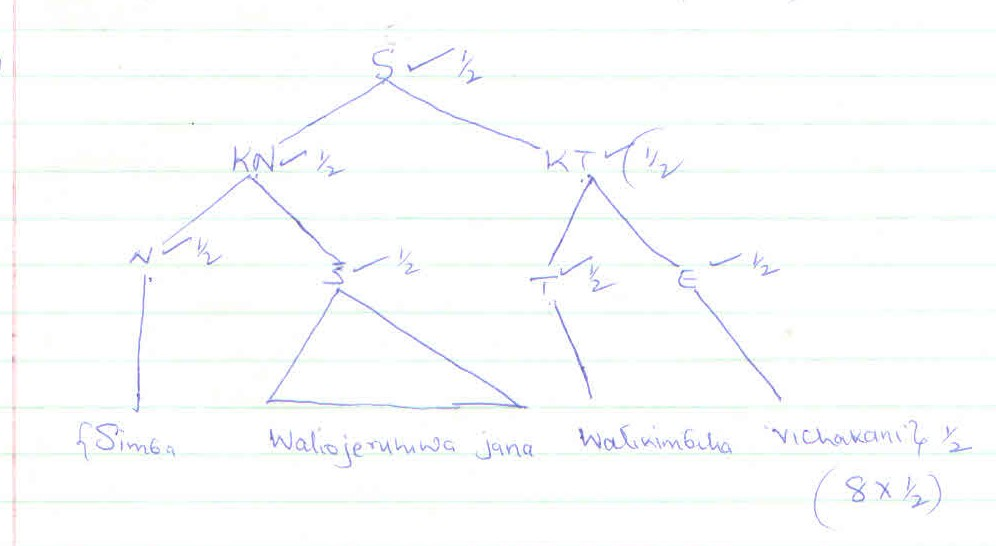 S ✓ ½
KN ✓ ½ KT ✓ ( ½
N ✓ ½ S ✓ ½ T ✓ ½ E ✓ ½
{Simba Waliojeruhiwa jana vichakani} ½
(8 x ½)